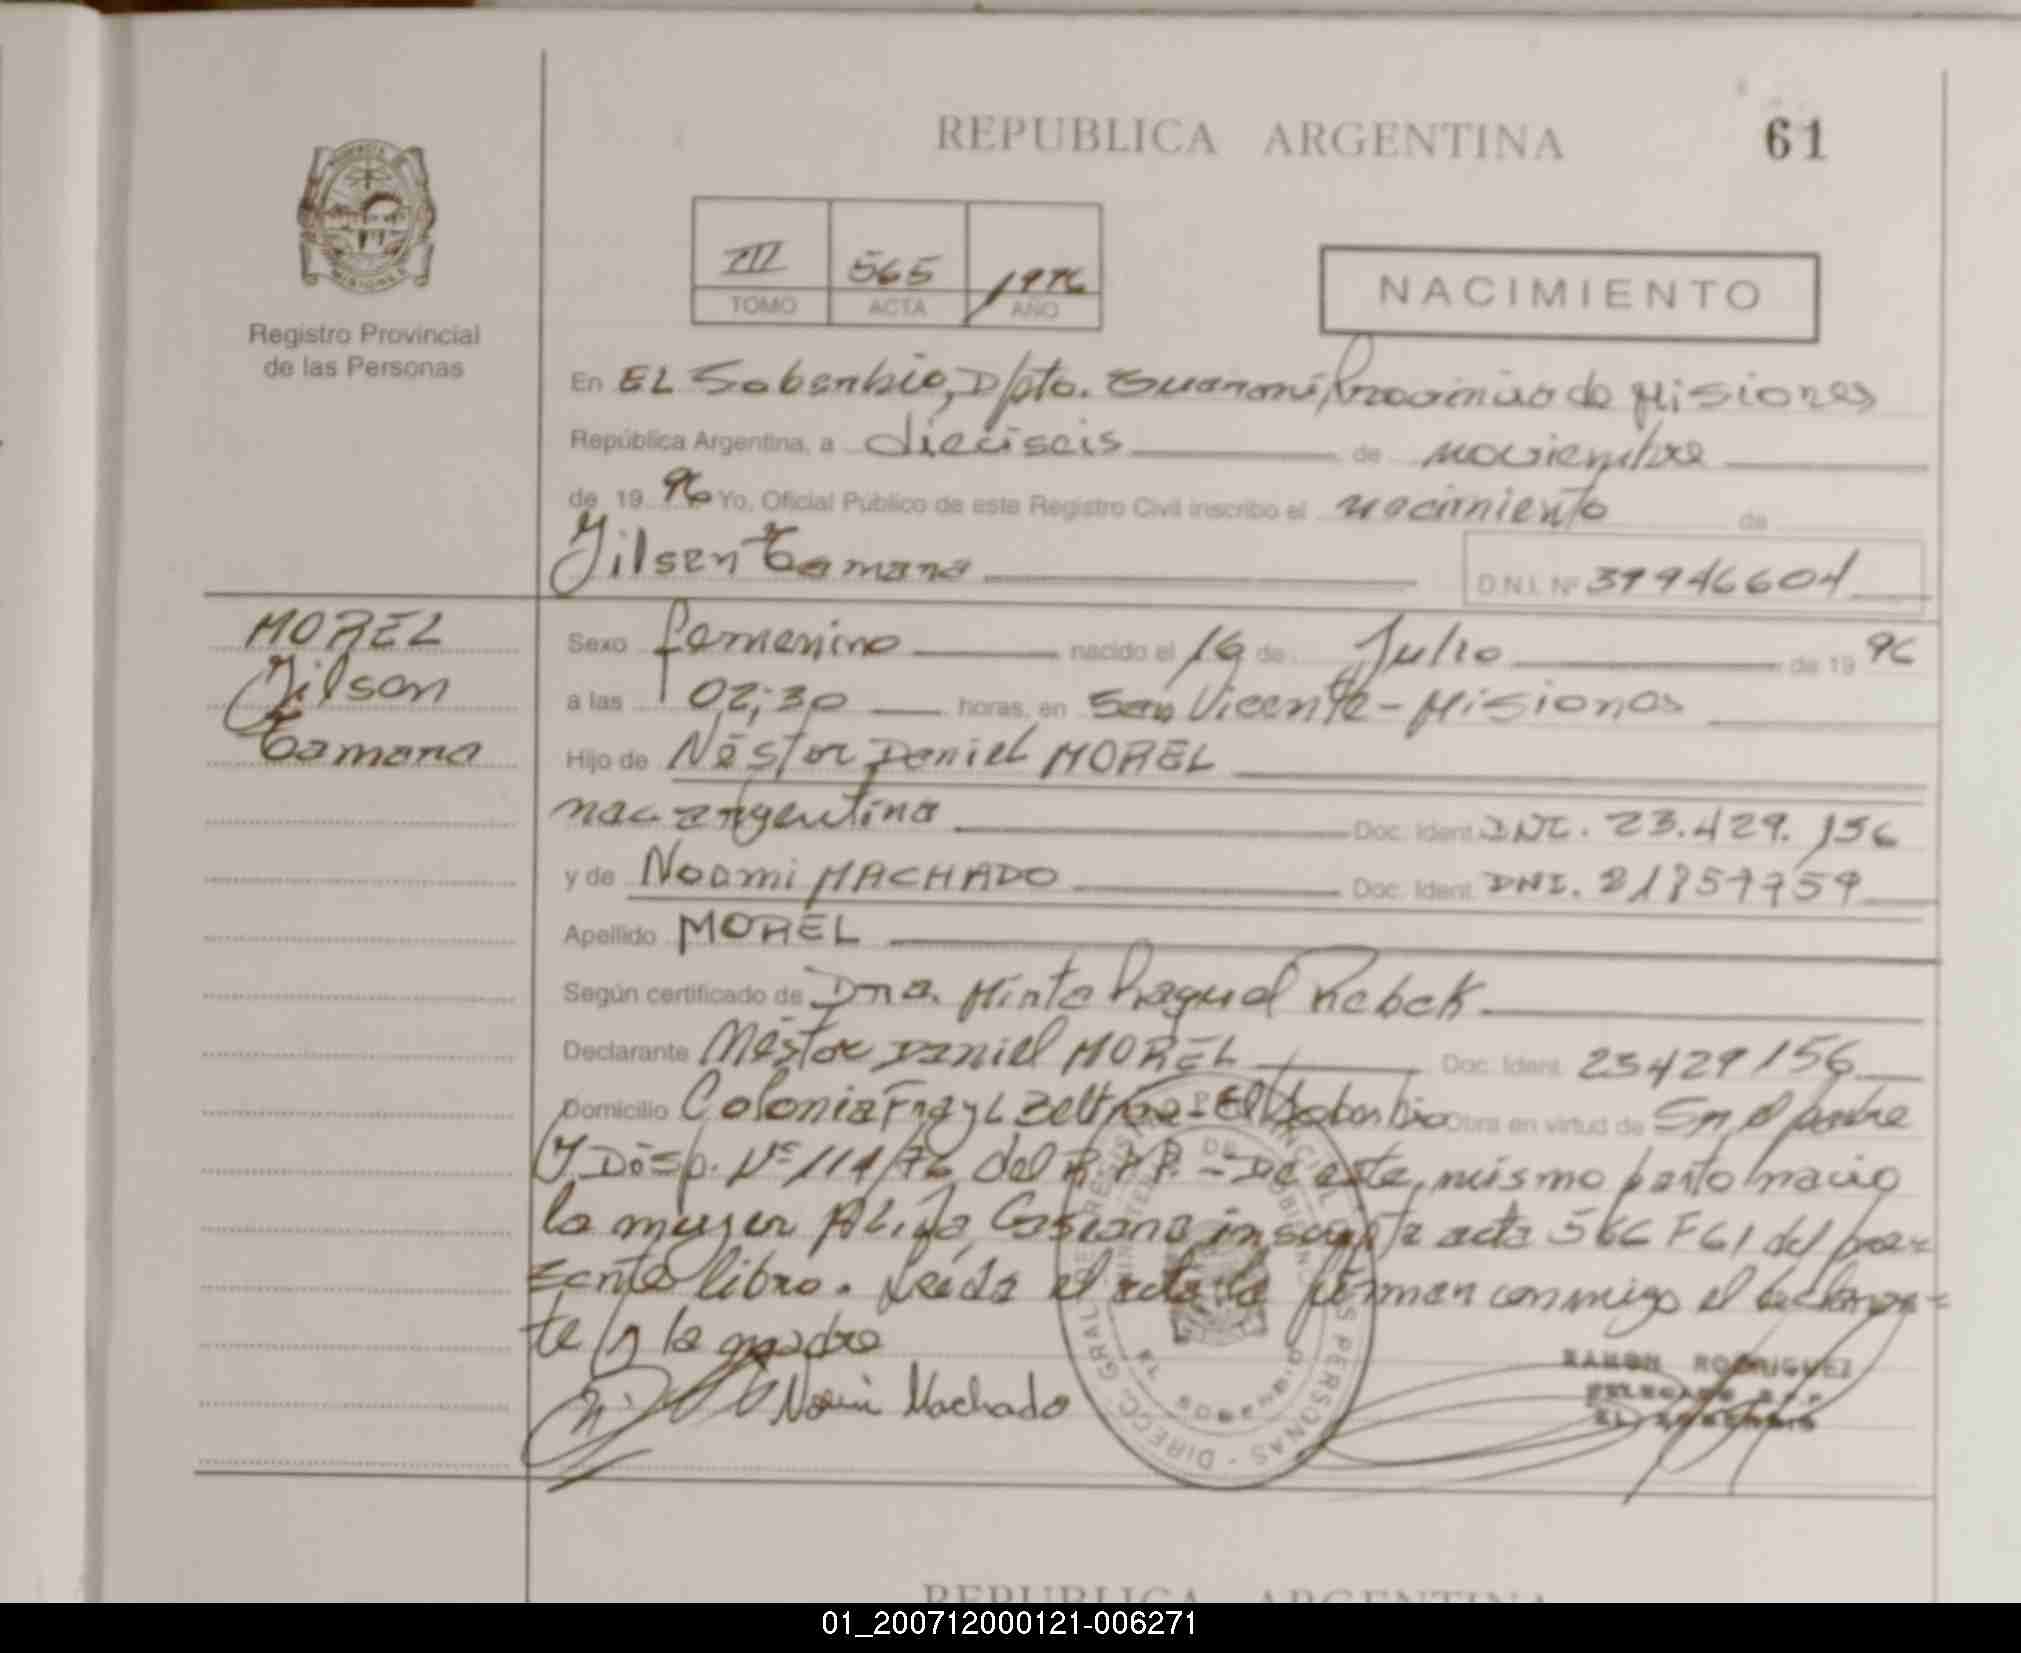 REPUBLICA ARGENTINA
61
PROVINCIA DE MISIONES
Registro Provincial
de las Personas
III 565 1996
TOMO ACTA AÑO
NACIMIENTO
En EL Soberbio, D/pto. Guarani, Provincia de Misiones
República Argentina, a dieciseis de noviembre
de 19 96 Yo, Oficial Público de este Registro Civil inscribo el nacimiento de
Jilsen Tamara
D.N.I. Nº 39946604
MOREL
Jilsen
Tamara
Sexo femenino nacido el 16 de Julio de 19 96
a las 02:30 horas, en San Vicente - Misiones
Hijo de Néstor Daniel MOREL
nac argentina Doc. Ident. DNI. 23.429.156
y de Noemi MACHADO Doc. Ident. DNI. 21857759
Apellido MOREL
Según certificado de Dra. Mirta Raquel Rebek
Declarante Néstor Daniel MOREL Doc. Ident. 23429156
Domicilio Colonia Fray L Beltran - El Soberbio Obra en virtud de Ser el padre
Y Disp. Nº 114/96 del R.P.P. - De este mismo parto nacio
la mujer inscripta acta 566 F61 del pre-
sente libro. Leida el acta la firman conmigo el declaran-
te y la madre
Noemi Machado
RAMON RODRIGUEZ
DELEGADO R.P.P.
EL SOBERBIO
DIRECC. GRAL. DE REGISTRO PROVINCIAL DE LAS PERSONAS
MINISTERIO DE GOBIERNO
EL SOBERBIO
REPUBLICA ARGENTINA
01_200712000121-006271